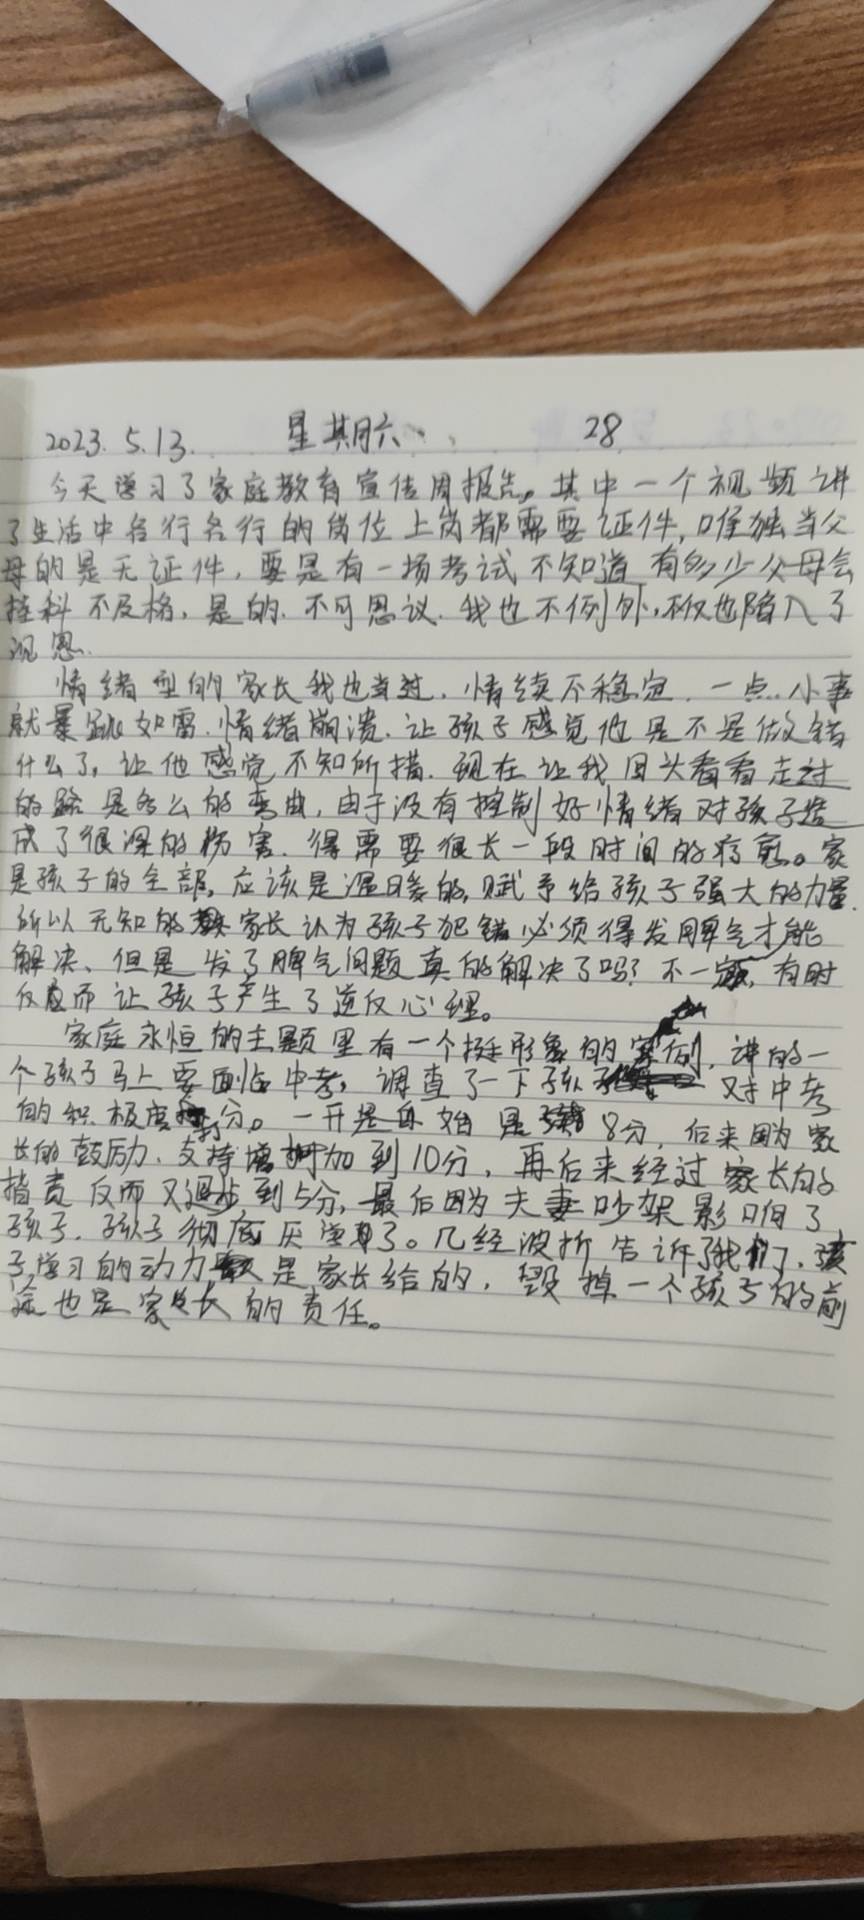 2023.5.13. 星期六 28
今天学习了家庭教育宣传周报告,其中一个视频讲
了生活中各行各行的岗位上岗都需要证件,唯独当父
母的是无证件,要是有一场考试不知道有多少父母会
挂科不及格,是的.不可思议.我也不例外,不仅也陷入了
沉思.
情绪型的家长我也当过.情绪不稳定.一点小事
就暴跳如雷.情绪崩溃.让孩子感觉他是不是做错
什么了,让他感觉不知所措.现在让我回头看看走过
的路是多么的弯曲,由于没有控制好情绪对孩子造
成了很深的伤害.得需要很长一段时间的疗愈。家
是孩子的全部,应该是温暖的,赋予给孩子强大的力量.
所以无知的家长认为孩子犯错必须得发脾气才能
解决、但是发了脾气问题真的解决了吗?不一定,有时
反而让孩子产生了逆反心理。
家庭永恒的主题里有一个挺形象的案例,讲的一
个孩子马上要面临中考,调查了一下孩子对中考
的积极度打分。一开是自始是8分,后来因为家
长的鼓励、支持增加到10分,再后来经过家长的
指责反而又退步到5分,最后因为夫妻吵架影响了
孩子.孩子彻底厌学了。几经波折告诉了我们,孩
子学习的动力是家长给的,毁掉一个孩子的前
途也是家长的责任。